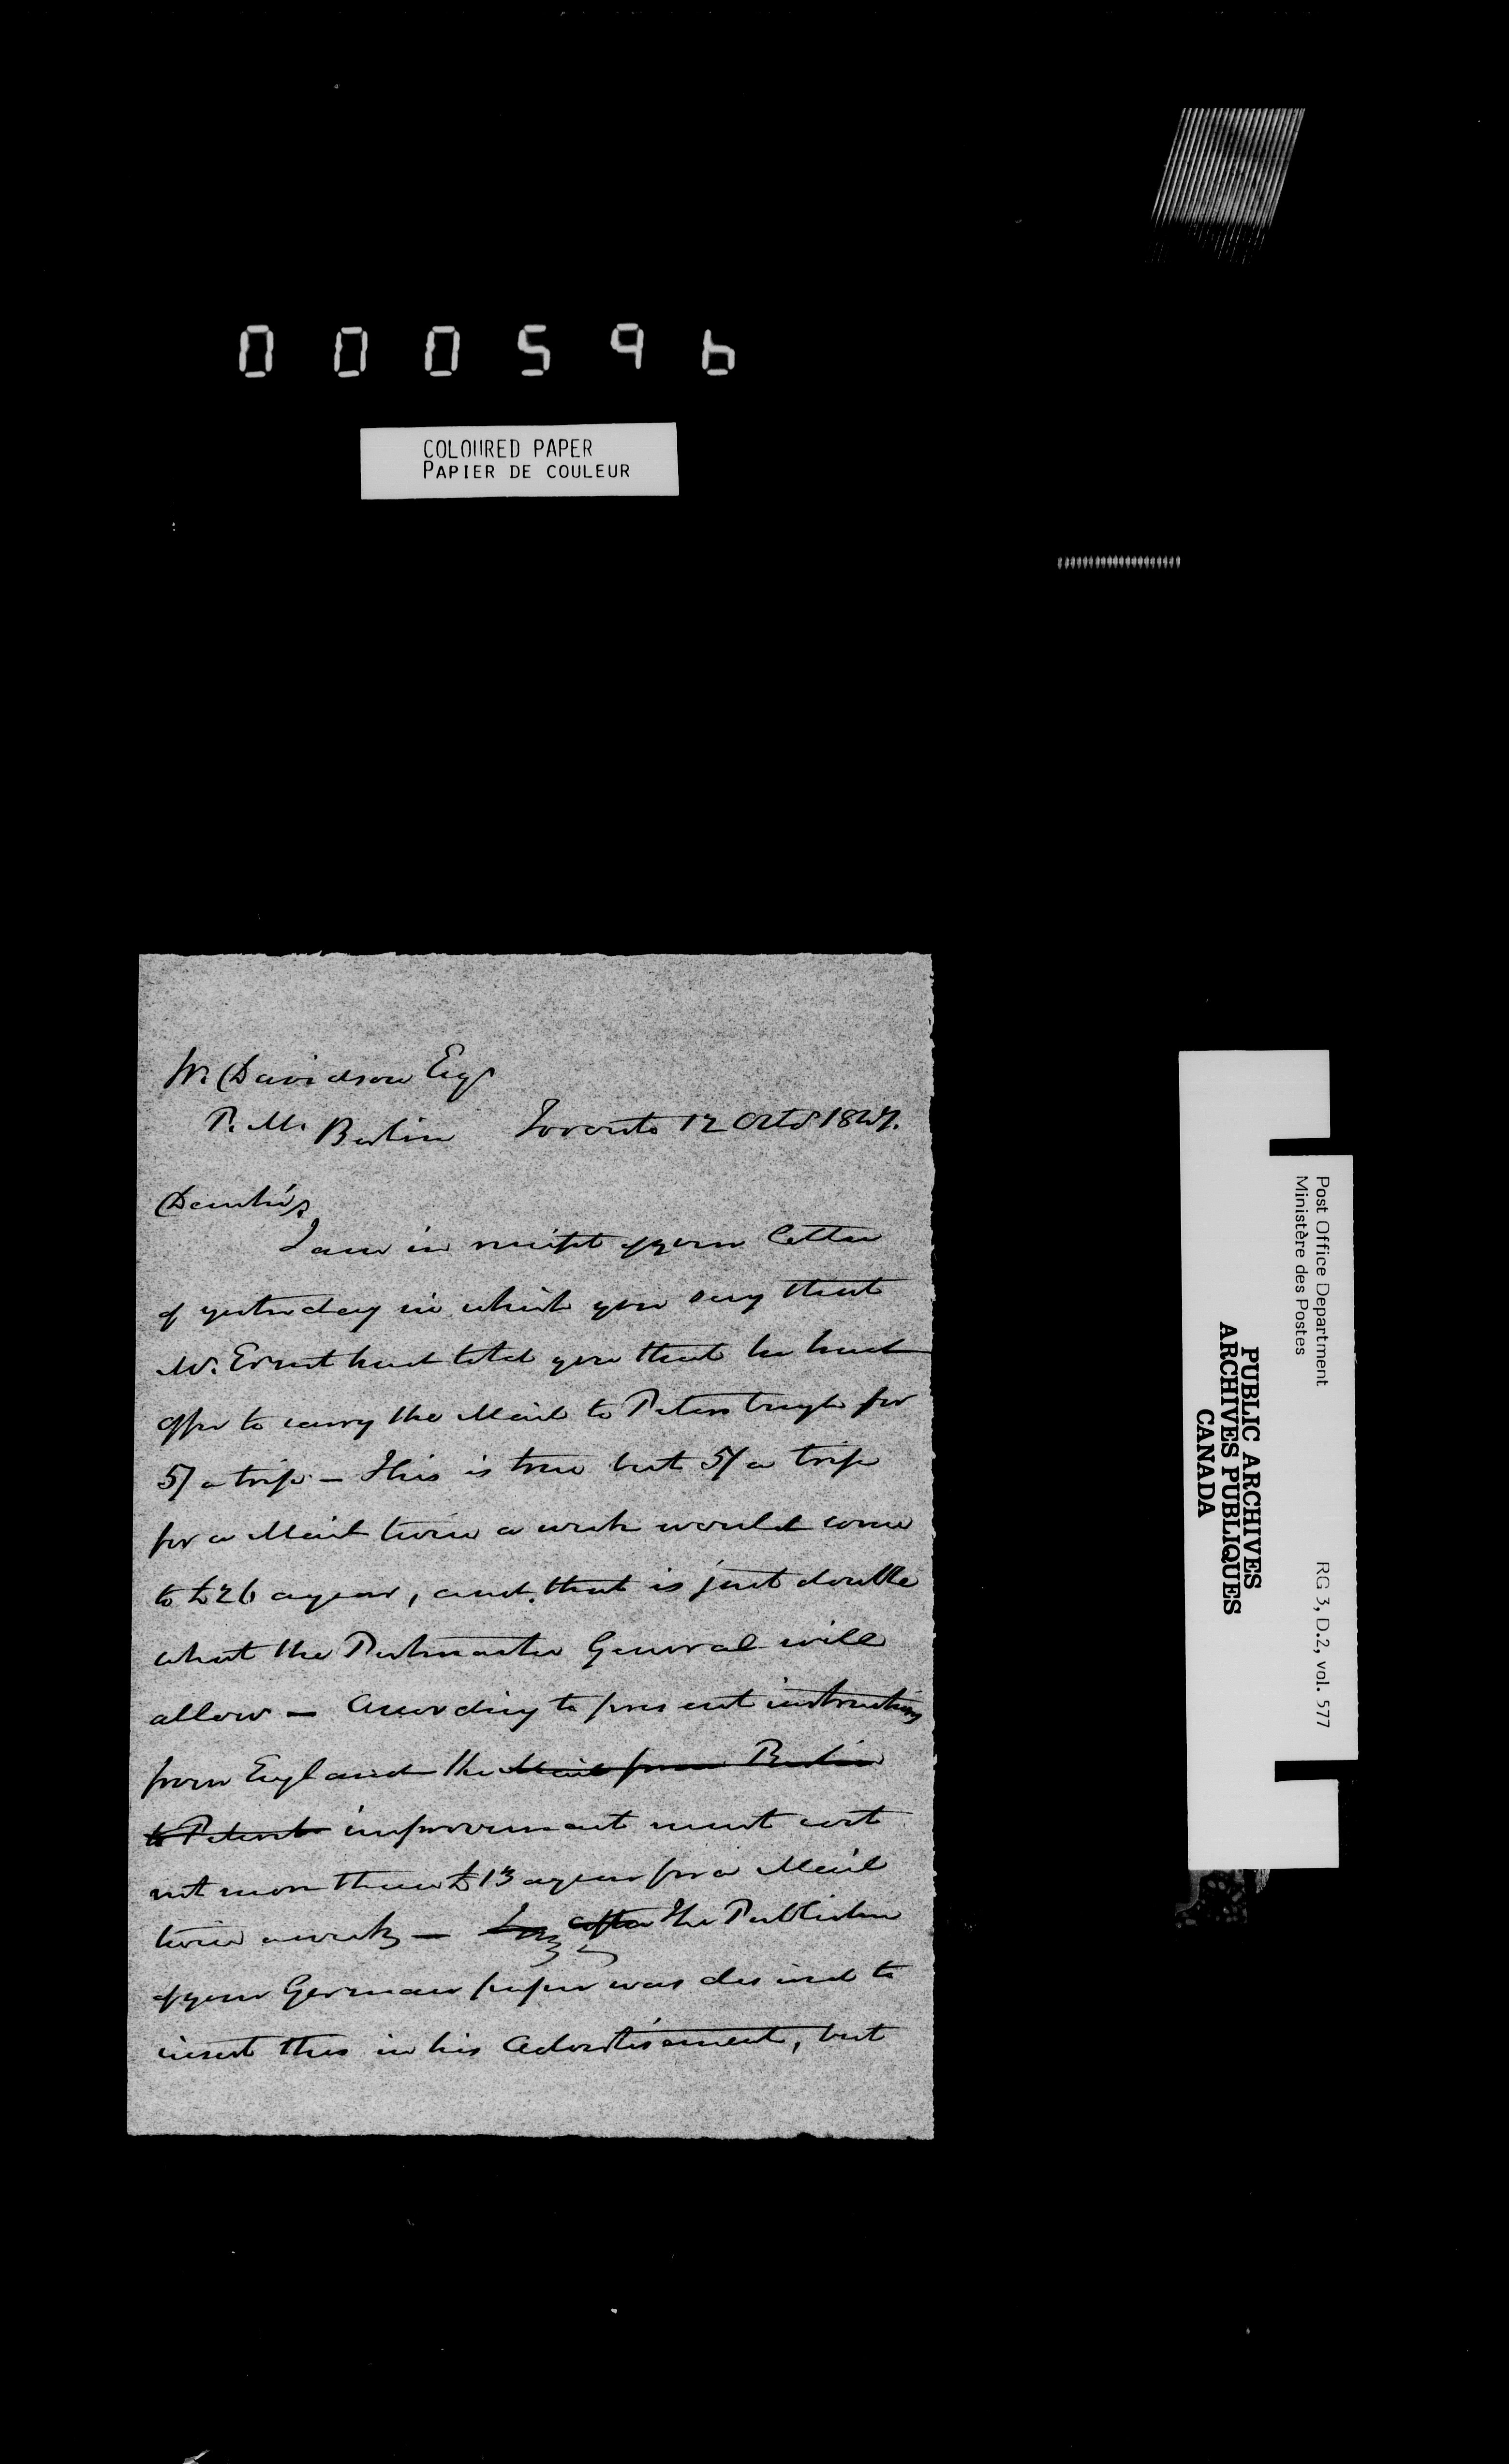 000596
COLOURED PAPER
PAPIER DE COULEUR
W. Davidson Esqr
P. M. Berlin Toronto 12 Octr 1847.
Dear Sir,
I am in receipt of your letter
of yesterday in which you say that
Mr. Ernst had told you that he had
offer to carry the Mail to Petersburgh for
5/ a trip — This is true but 5/ a trip
for a Mail twice a week would come
to £26 a year, and that is just double
what the Postmaster General will
allow — According to present instructions
from England the Mail from Berlin
to Petersb improvement must cost
not more than £13 a year for a Mail
twice a week — after The Publisher
of your German paper was desired to
insert this in his Advertisement, but
Post Office Department
Ministère des Postes
RG 3, D.2, vol. 577
PUBLIC ARCHIVES
ARCHIVES PUBLIQUES
CANADA